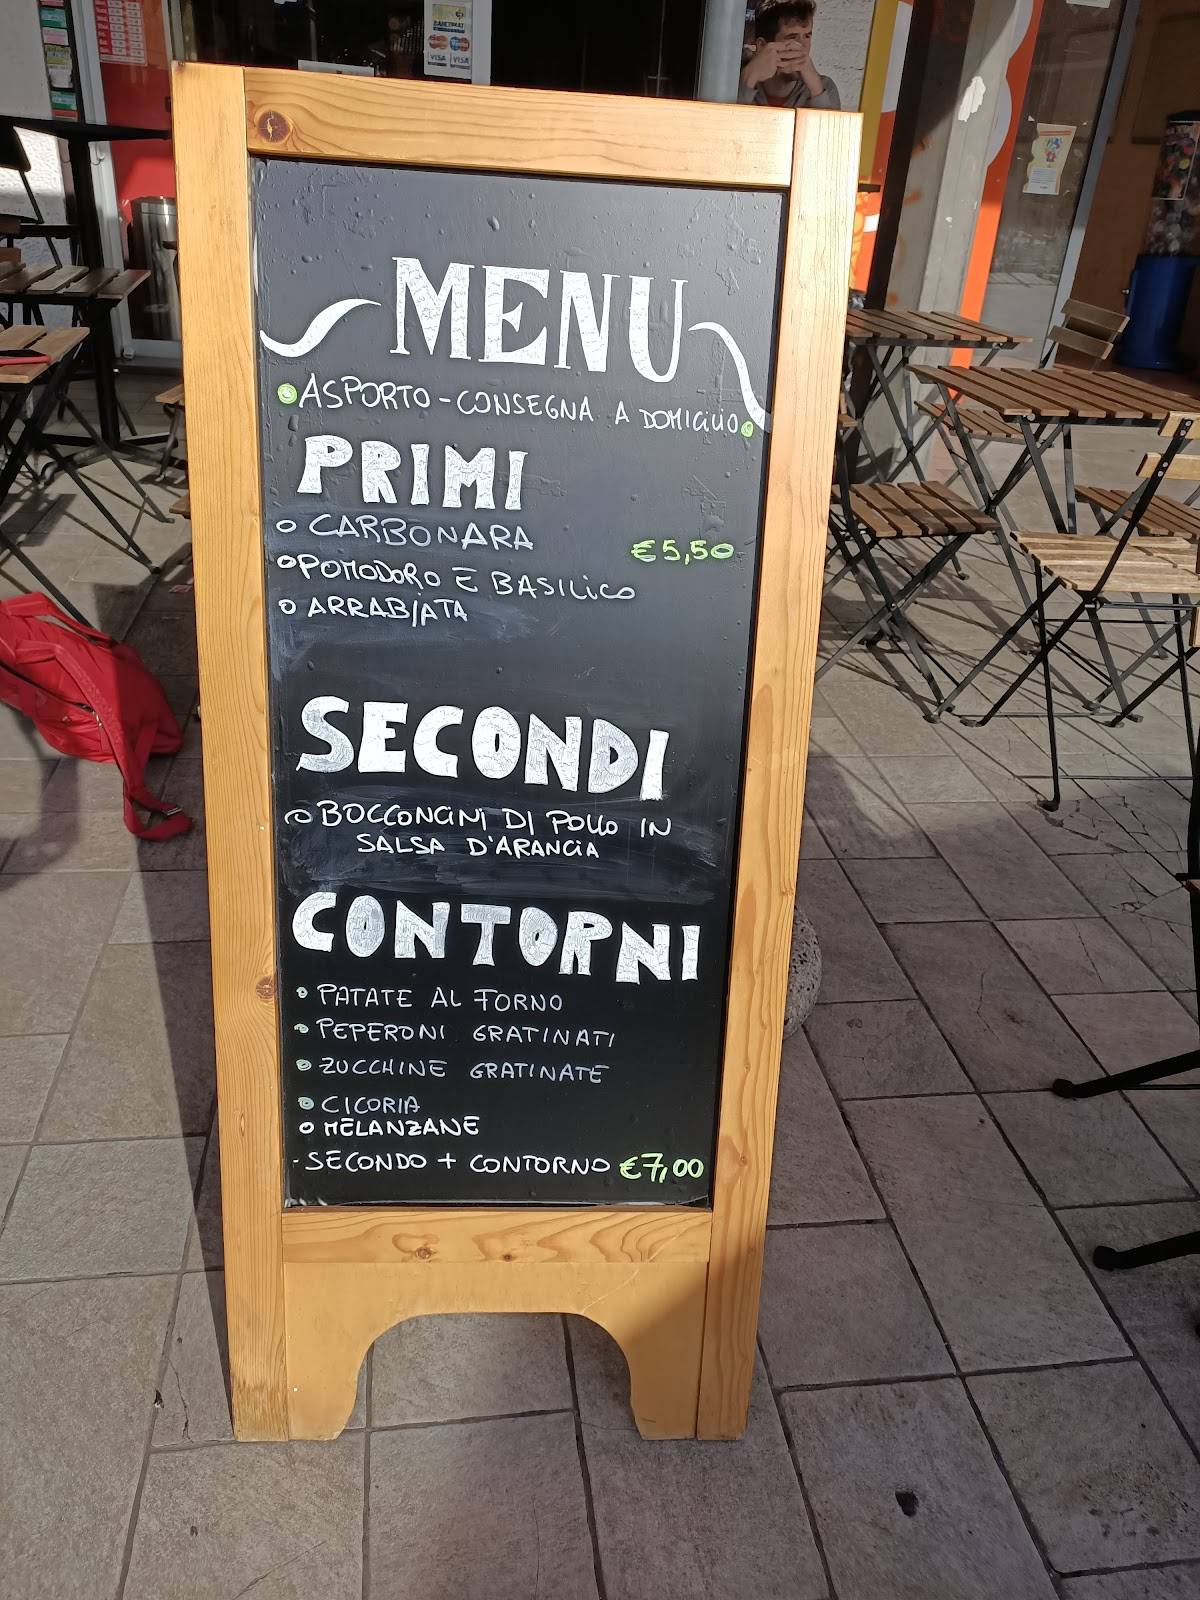 MENU
ASPORTO - CONSEGNA A DOMICILIO
PRIMI
CARBONARA
€5,50
POMODORO E BASILICO
ARRABIATA
SECONDI
BOCCONCINI DI POLLO IN
SALSA D'ARANCIA
CONTORNI
PATATE AL FORNO
PEPERONI GRATINATI
ZUCCHINE GRATINATE
CICORIA
MELANZANE
- SECONDO + CONTORNO €7,00
VISA VISA